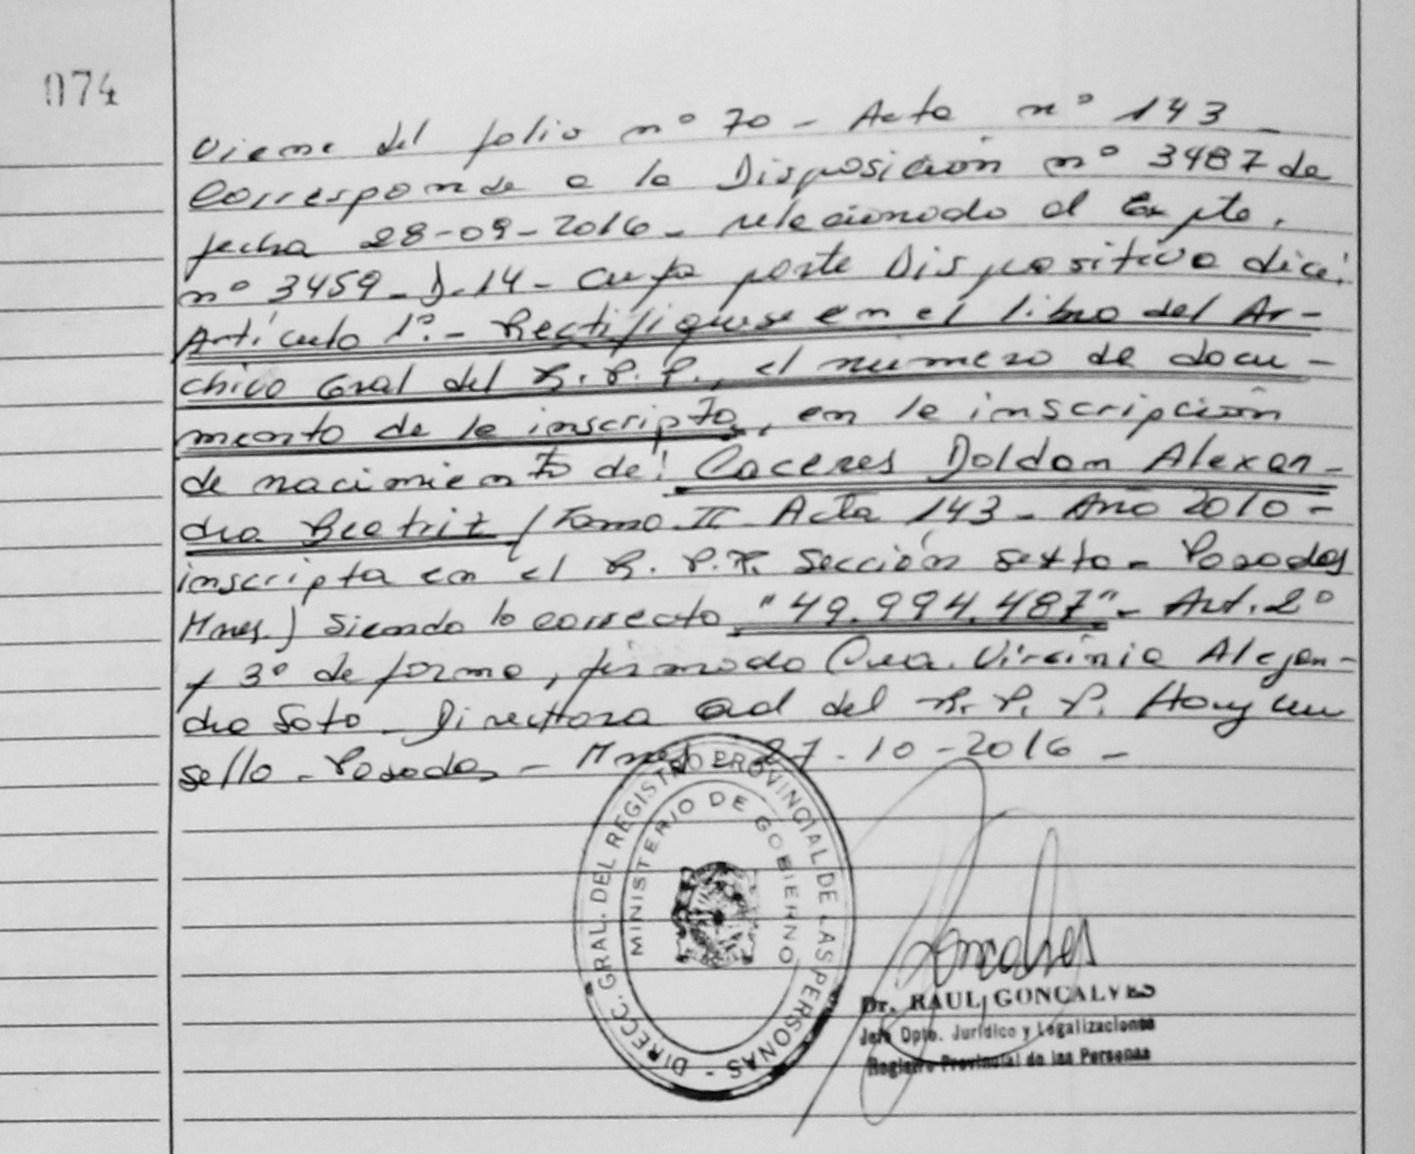 074
Viene del folio nº 70 - Acta nº 143 -
Corresponde a la Disposición nº 3487 de
fecha 28-09-2016 - relacionado al Expte.
nº 3459 - D - 14 - Cuya parte Dispositiva dice:
Artículo 1º.- Rectifiquese en el libro del Ar-
chivo Gral del R. P. P., el número de docu-
mento de la inscripta, en la inscripción
de nacimiento de: Caceres Doldan Alexan-
dra Beatriz (Tomo II Acta 143 - Año 2010 -
inscripta en el R. P. P. Sección sexta - Posadas
Mnes.) Siendo lo correcto "49.994.487" - Art. 2º
y 3º de forma, firmado Cra. Virginia Alejan-
dra Soto - Directora Gral del R. P. P. Hay un
sello - Posadas - Mnes 27-10-2016 -
DIRECC. GRAL. DEL REGISTRO PROVINCIAL DE LAS PERSONAS -
MINISTERIO DE GOBIERNO
Goncalves
Dr. RAUL GONCALVES
Jefe Dpto. Jurídico y Legalizaciones
Registro Provincial de las Personas